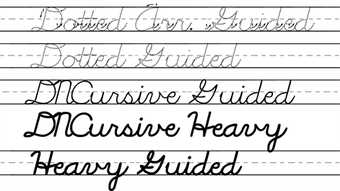 Dotted Arr. Guided
Dotted Guided
DNCursive Guided
DNCursive Heavy
Heavy Guided